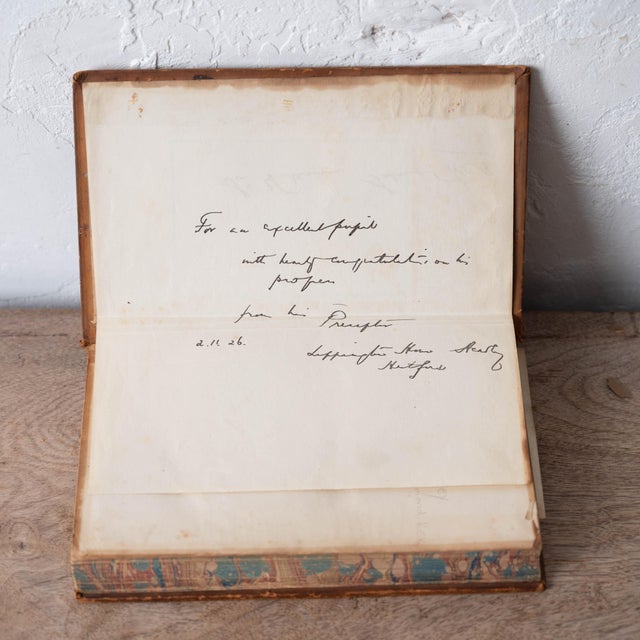 For an excellent pupil
with hearty congratulations on his
progress
from his Preceptor
2.11.26.
House